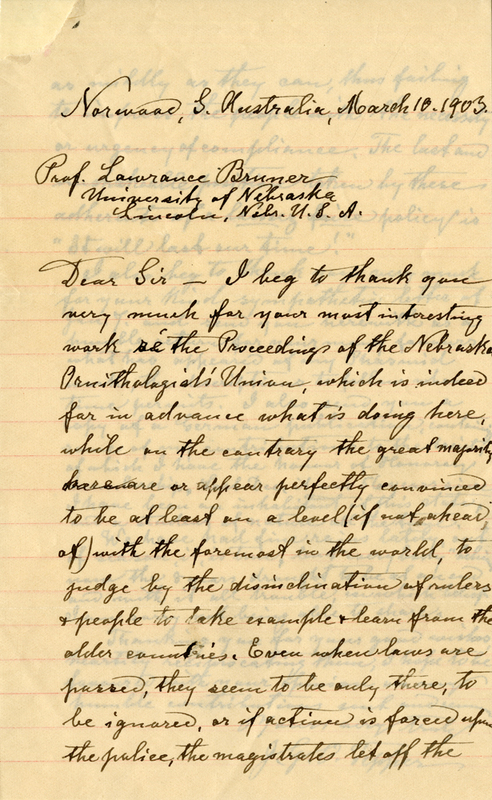 Norwood, S. Australia, March 10. 1903.
Prof. Lawrance Bruner
University of Nebraska
Lincoln, Nebr. U. S. A.
Dear Sir — I beg to thank you
very much for your most interesting
work re the Proceedings of the Nebraska
Ornithologist's Union, which is indeed
far in advance what is doing here,
while on the contrary the great majority
here are or appear perfectly convinced
to be at least on a level (if not ahead
of) with the foremost in the world, to
judge by the disinclination of rulers
& people to take example & learn from the
older countries. Even when laws are
passed, they seem to be only there, to
be ignored, or if action is forced upon
the police, the magistrates let off the